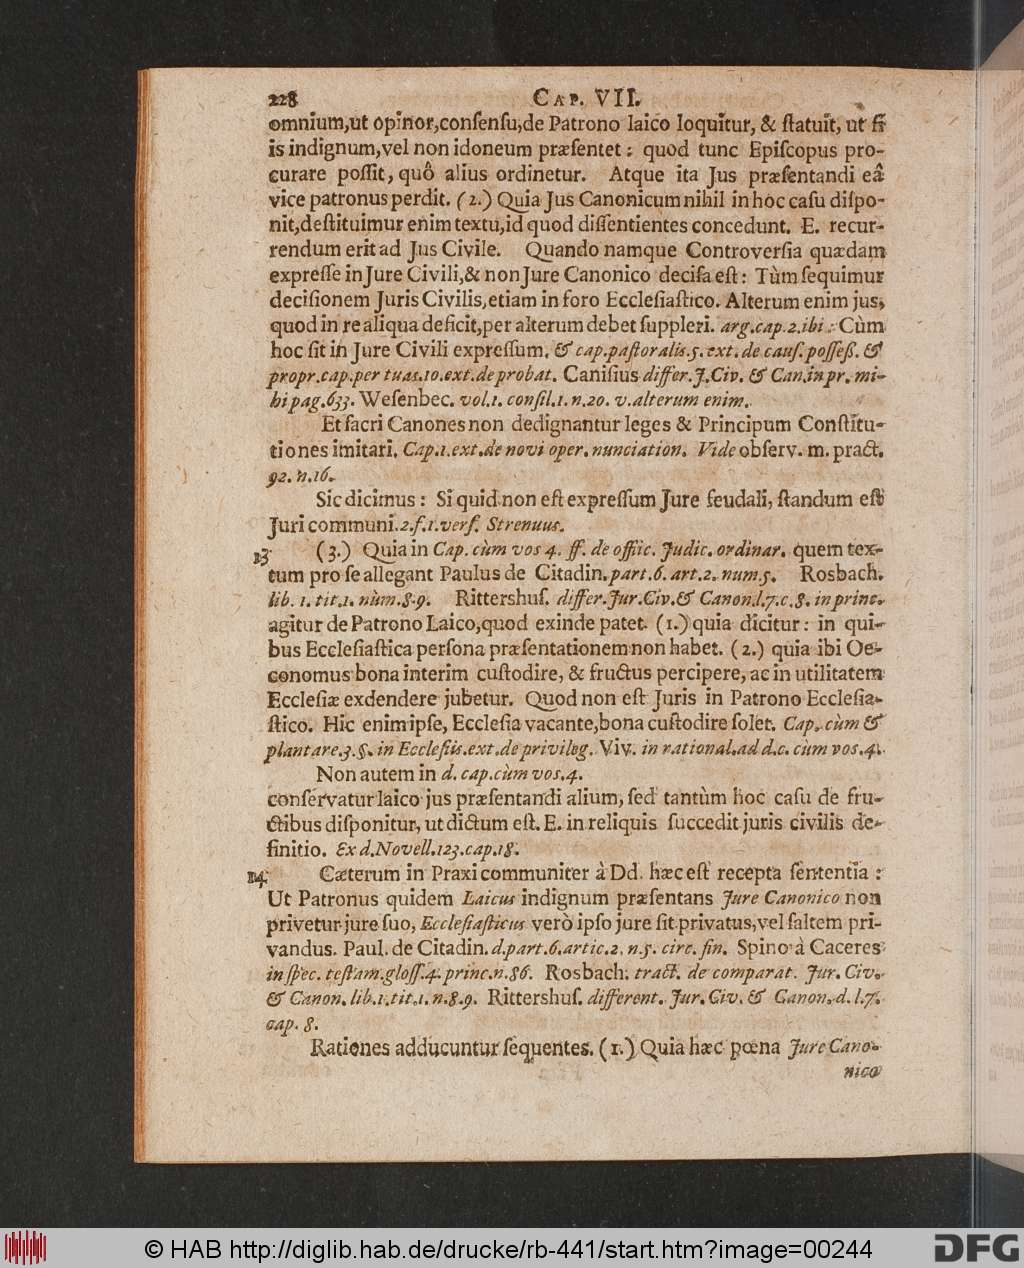 228 CAP. VII.
omnium,ut opinor,conſenſu,de Patrono laico loquitur, & ſtatuit, ut ſi
is indignum,vel non idoneum præſentet: quod tunc Epiſcopus pro-
curare poſſit, quô alius ordinetur. Atque ita Jus præſentandi eâ
vice patronus perdit. (2.) Quia Jus Canonicum nihil in hoc caſu diſpo-
nit,deſtituimur enim textu,id quod diſſentientes concedunt. E. recur-
rendum erit ad Jus Civile. Quando namque Controverſia quædam
expreſſe in Jure Civili,& non Jure Canonico deciſa eſt: Tùm ſequimur
deciſionem Juris Civilis,etiam in foro Eccleſiaſtico. Alterum enim jus,
quod in re aliqua deficit,per alterum debet ſuppleri. arg.cap.2.ibi: Cùm
hoc ſit in Jure Civili expreſſum. & cap.paſtoralis.5.ext.de cauſ.poſſeß. &
propr.cap.per tuas.10.ext.de probat. Caniſius differ.J.Civ. & Can.in pr. mi-
hi pag.633. Weſenbec. vol.1. conſil.1.n.20. v.alterum enim.
Et ſacri Canones non dedignantur leges & Principum Conſtitu-
tiones imitari. Cap.1.ext.de novi oper.nunciation. Vide obſerv. m. pract.
92. n.16.
Sic dicimus: Si quid non eſt expreſſum Jure feudali, ſtandum eſt
Juri communi.2.f.1.verſ. Strenuus.
13. (3.) Quia in Cap. cùm vos 4. ff. de offic. Judic. ordinar. quem tex-
tum pro ſe allegant Paulus de Citadin.part.6. art.2. num.5. Rosbach.
lib. 1. tit.1. nùm.8.9. Rittershuſ. differ.Jur.Civ.& Canon.l.7.c.8. in princ.
agitur de Patrono Laico,quod exinde patet. (1.) quia dicitur: in qui-
bus Eccleſiaſtica perſona præſentationem non habet. (2.) quia ibi Oe-
conomus bona interim cuſtodire, & fructus percipere, ac in utilitatem
Eccleſiæ exdendere jubetur. Quod non eſt Juris in Patrono Eccleſia-
ſtico. Hic enim ipſe, Eccleſia vacante,bona cuſtodire ſolet. Cap. cùm &
plantare.3.§. in Eccleſiis.ext.de privileg. Viv. in rational.ad d.c. cùm vos.4.
Non autem in d. cap.cùm vos.4.
conſervatur laico jus præſentandi alium, ſed tantùm hoc caſu de fru-
ctibus diſponitur, ut dictum eſt. E. in reliquis ſuccedit juris civilis de-
finitio. Ex d.Novell.123.cap.18.
14. Cæterum in Praxi communiter à Dd. hæc eſt recepta ſententia:
Ut Patronus quidem Laicus indignum præſentans Jure Canonico non
privetur jure ſuo, Eccleſiaſticus verò ipſo jure ſit privatus,vel ſaltem pri-
vandus. Paul. de Citadin.d.part.6.artic.2. n.5. circ. fin. Spino à Caceres
in ſpec. teſtam.gloſſ.4.princ.n.86. Rosbach. tract. de comparat. Jur. Civ.
& Canon. lib.1.tit.1.n.8.9. Rittershuſ. different. Jur. Civ. & Canon.d.l.7.
cap. 8.
Rationes adducuntur ſequentes. (1.) Quia hæc pœna Jure Cano-
nico
© HAB http://diglib.hab.de/drucke/rb-441/start.htm?image=00244
DFG